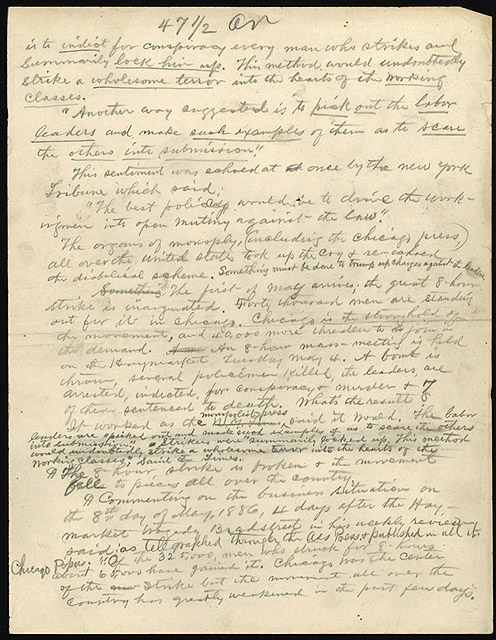 47 1/2 Or
is to indict for conspiracy every man who strikes and
summarily lock him up. This method would undoubtedly
strike a wholesome terror into the hearts of the working
classes.
"Another way suggested is to pick out the labor
leaders and make such examples of them as to scare
the others into submission."
This sentiment was echoed at once by the New York
Tribune which said;
"The best policy would be to drive the work-
ingmen into open mutiny against the law".
The organs of monoply (including the Chicago press)
all over the United States took up the cry & re-echoed
the diabolical scheme. Something must be done to trump up charges against the leaders
The first of May arrives, the great 8-hour
strike is inaugurated. Forty thousand men are standing
out for it in Chicago. Chicago is the stronghold of
the movement, and 40,000 more threaten to join in
the demand. An 8-hour mass-meeting is held
on the Haymarket Tuesday May 4. A bomb is
thrown, several policemen killed, the leaders are
arrested, indicted, for conspiracy & murder & 7
of them sentenced to death. Whats the result?
It worked as the monopolistic press said it would. The labor
leaders are picked out and made such examples of as to scare the others
into submission." Strikers were "summarily locked up. This method
would undoubtedly strike a wholesome terror into the hearts of the
working classes", said the Times.
The 8 hour strike is broken & the movement
fell to pieces all over the country.
A Commenting on the business situation on
the 8th day of May, 1886, 4 days after the Hay-
market tragedy Bradstreet in his weekly review
said, as telegraphed through the Ass Press & published in all the
Chicago Papers: "Of the 325,000, men who struck for 8-hours
about 65,000 have gained it. Chicago was the center
of the strike but the movement all over the
country has greatly weakened in the past few days".